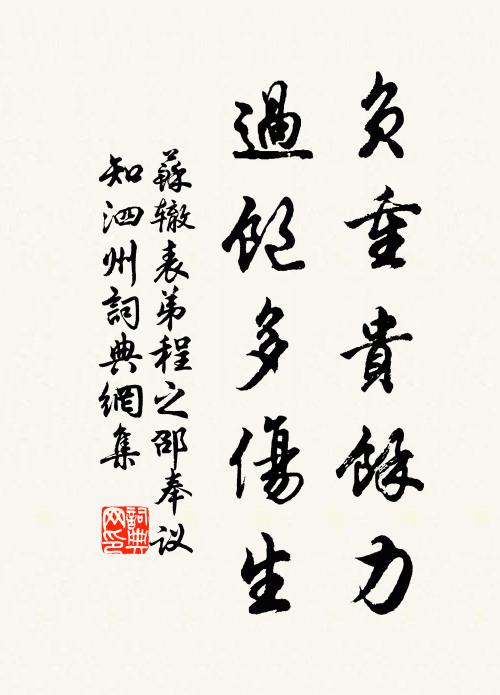 负重貴餘力
過飽多傷生
蘇辙表弟程之邵奉议
知泗州詞典網集
詞典网印